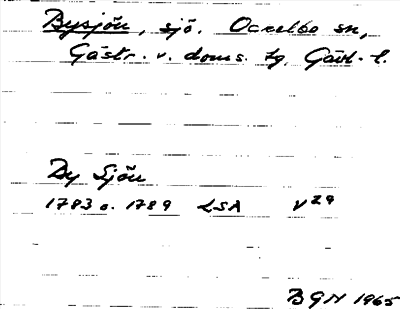 Bysjön, sjö. Ockelbo sn,
Gästr. v. doms. tg, Gävl. l.
By Sjön
1783 o. 1789 LSA V29
BGN 1965